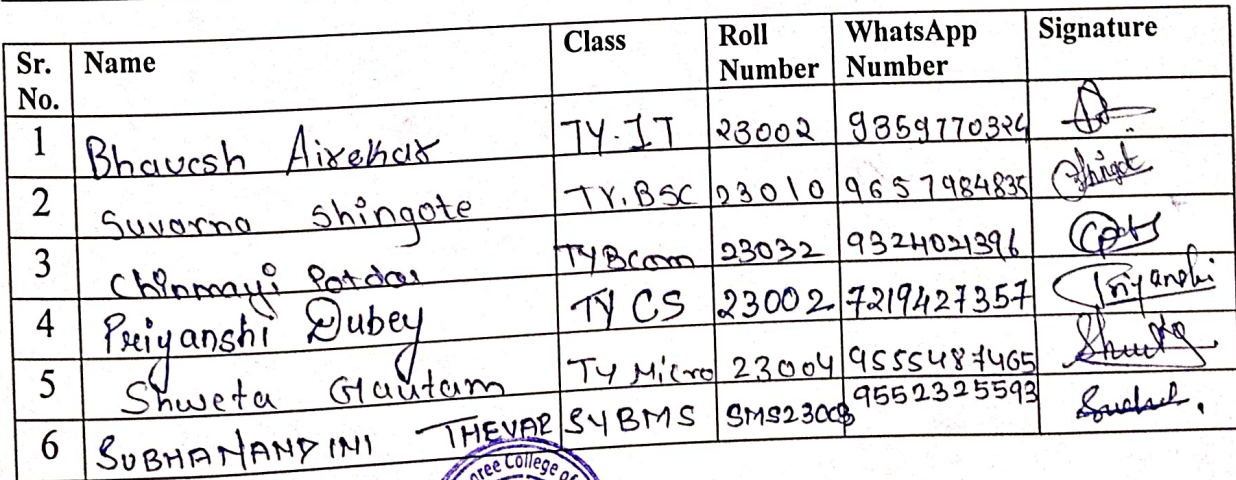 Sr. No. Name Class Roll Number WhatsApp Number Signature
1 Bhavesh Airekar TY.IT 23002 9359770324
2 Suvarna Shingote TY.BSC 23010 9657984835 Shingot
3 Chinmayi Potdar TYBcom 23032 9324021396
4 Priyanshi Dubey TY CS 23002 7219427357 Priyanshi
5 Shweta Gautam TY Micro 23004 9555487465
6 SUBHANANDINI THEVAR SYBMS SMS23008 9552325593
ree College of